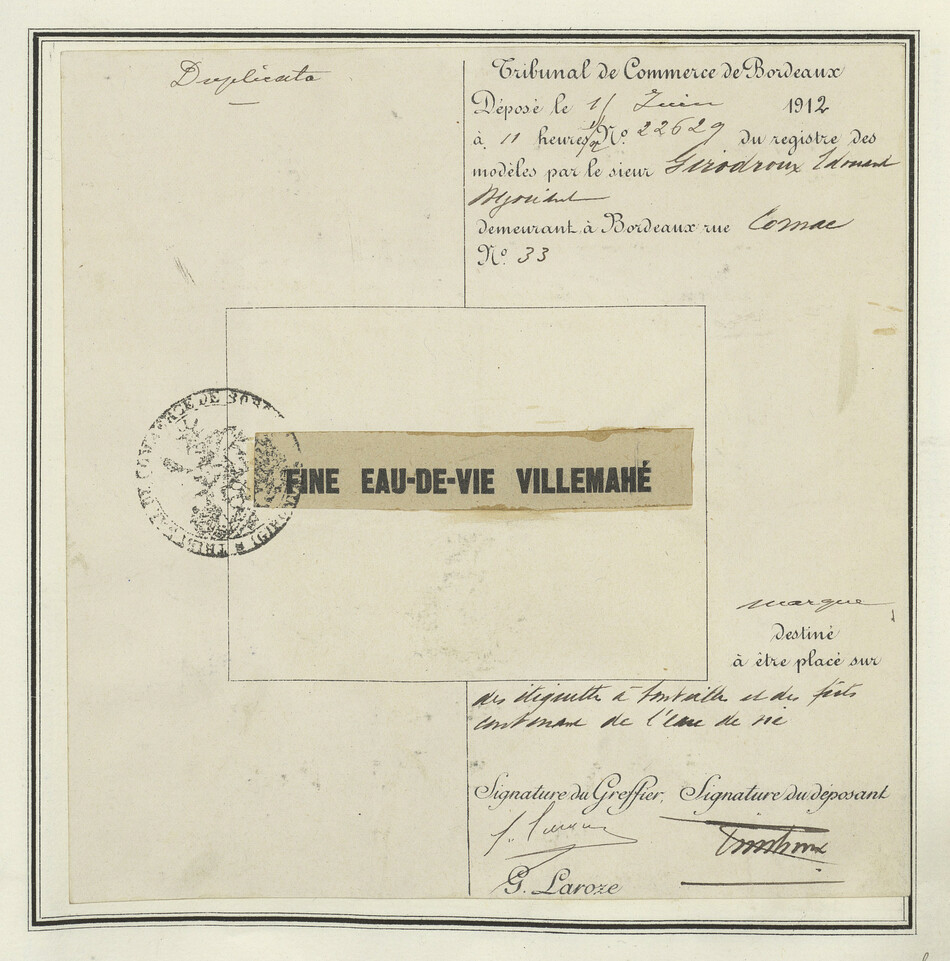 Duplicata
Tribunal de Commerce de Bordeaux
Déposé le 1/ Juin 1912
à 11 heures 1/2 No. 22629 du registre des
modèles par le sieur Girodroux Edouard
Négociant
demeurant à Bordeaux rue Cornac
No. 33
TRIBUNAL DE COMMERCE DE BORD
FINE EAU-DE-VIE VILLEMAHÉ
marque
destiné
à être placé sur
des étiquette à bouteille et des fûts
contenant de l'eau de vie
Signature du Greffier, Signature du déposant
G. Laroze